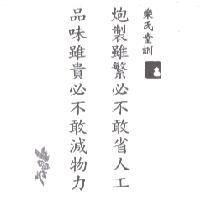 樂氏堂訓
炮製雖繁必不敢省人工
品味雖貴必不敢減物力